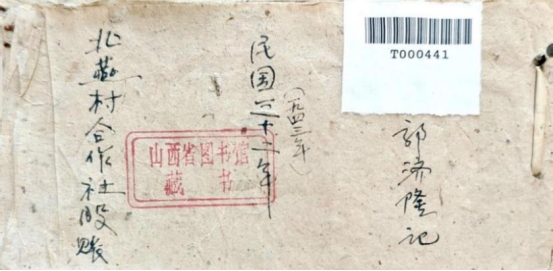 北燕村合作社股账
民国三十二年
（一九四三年）
郭济隆记
山西省图书馆
藏书
T000441